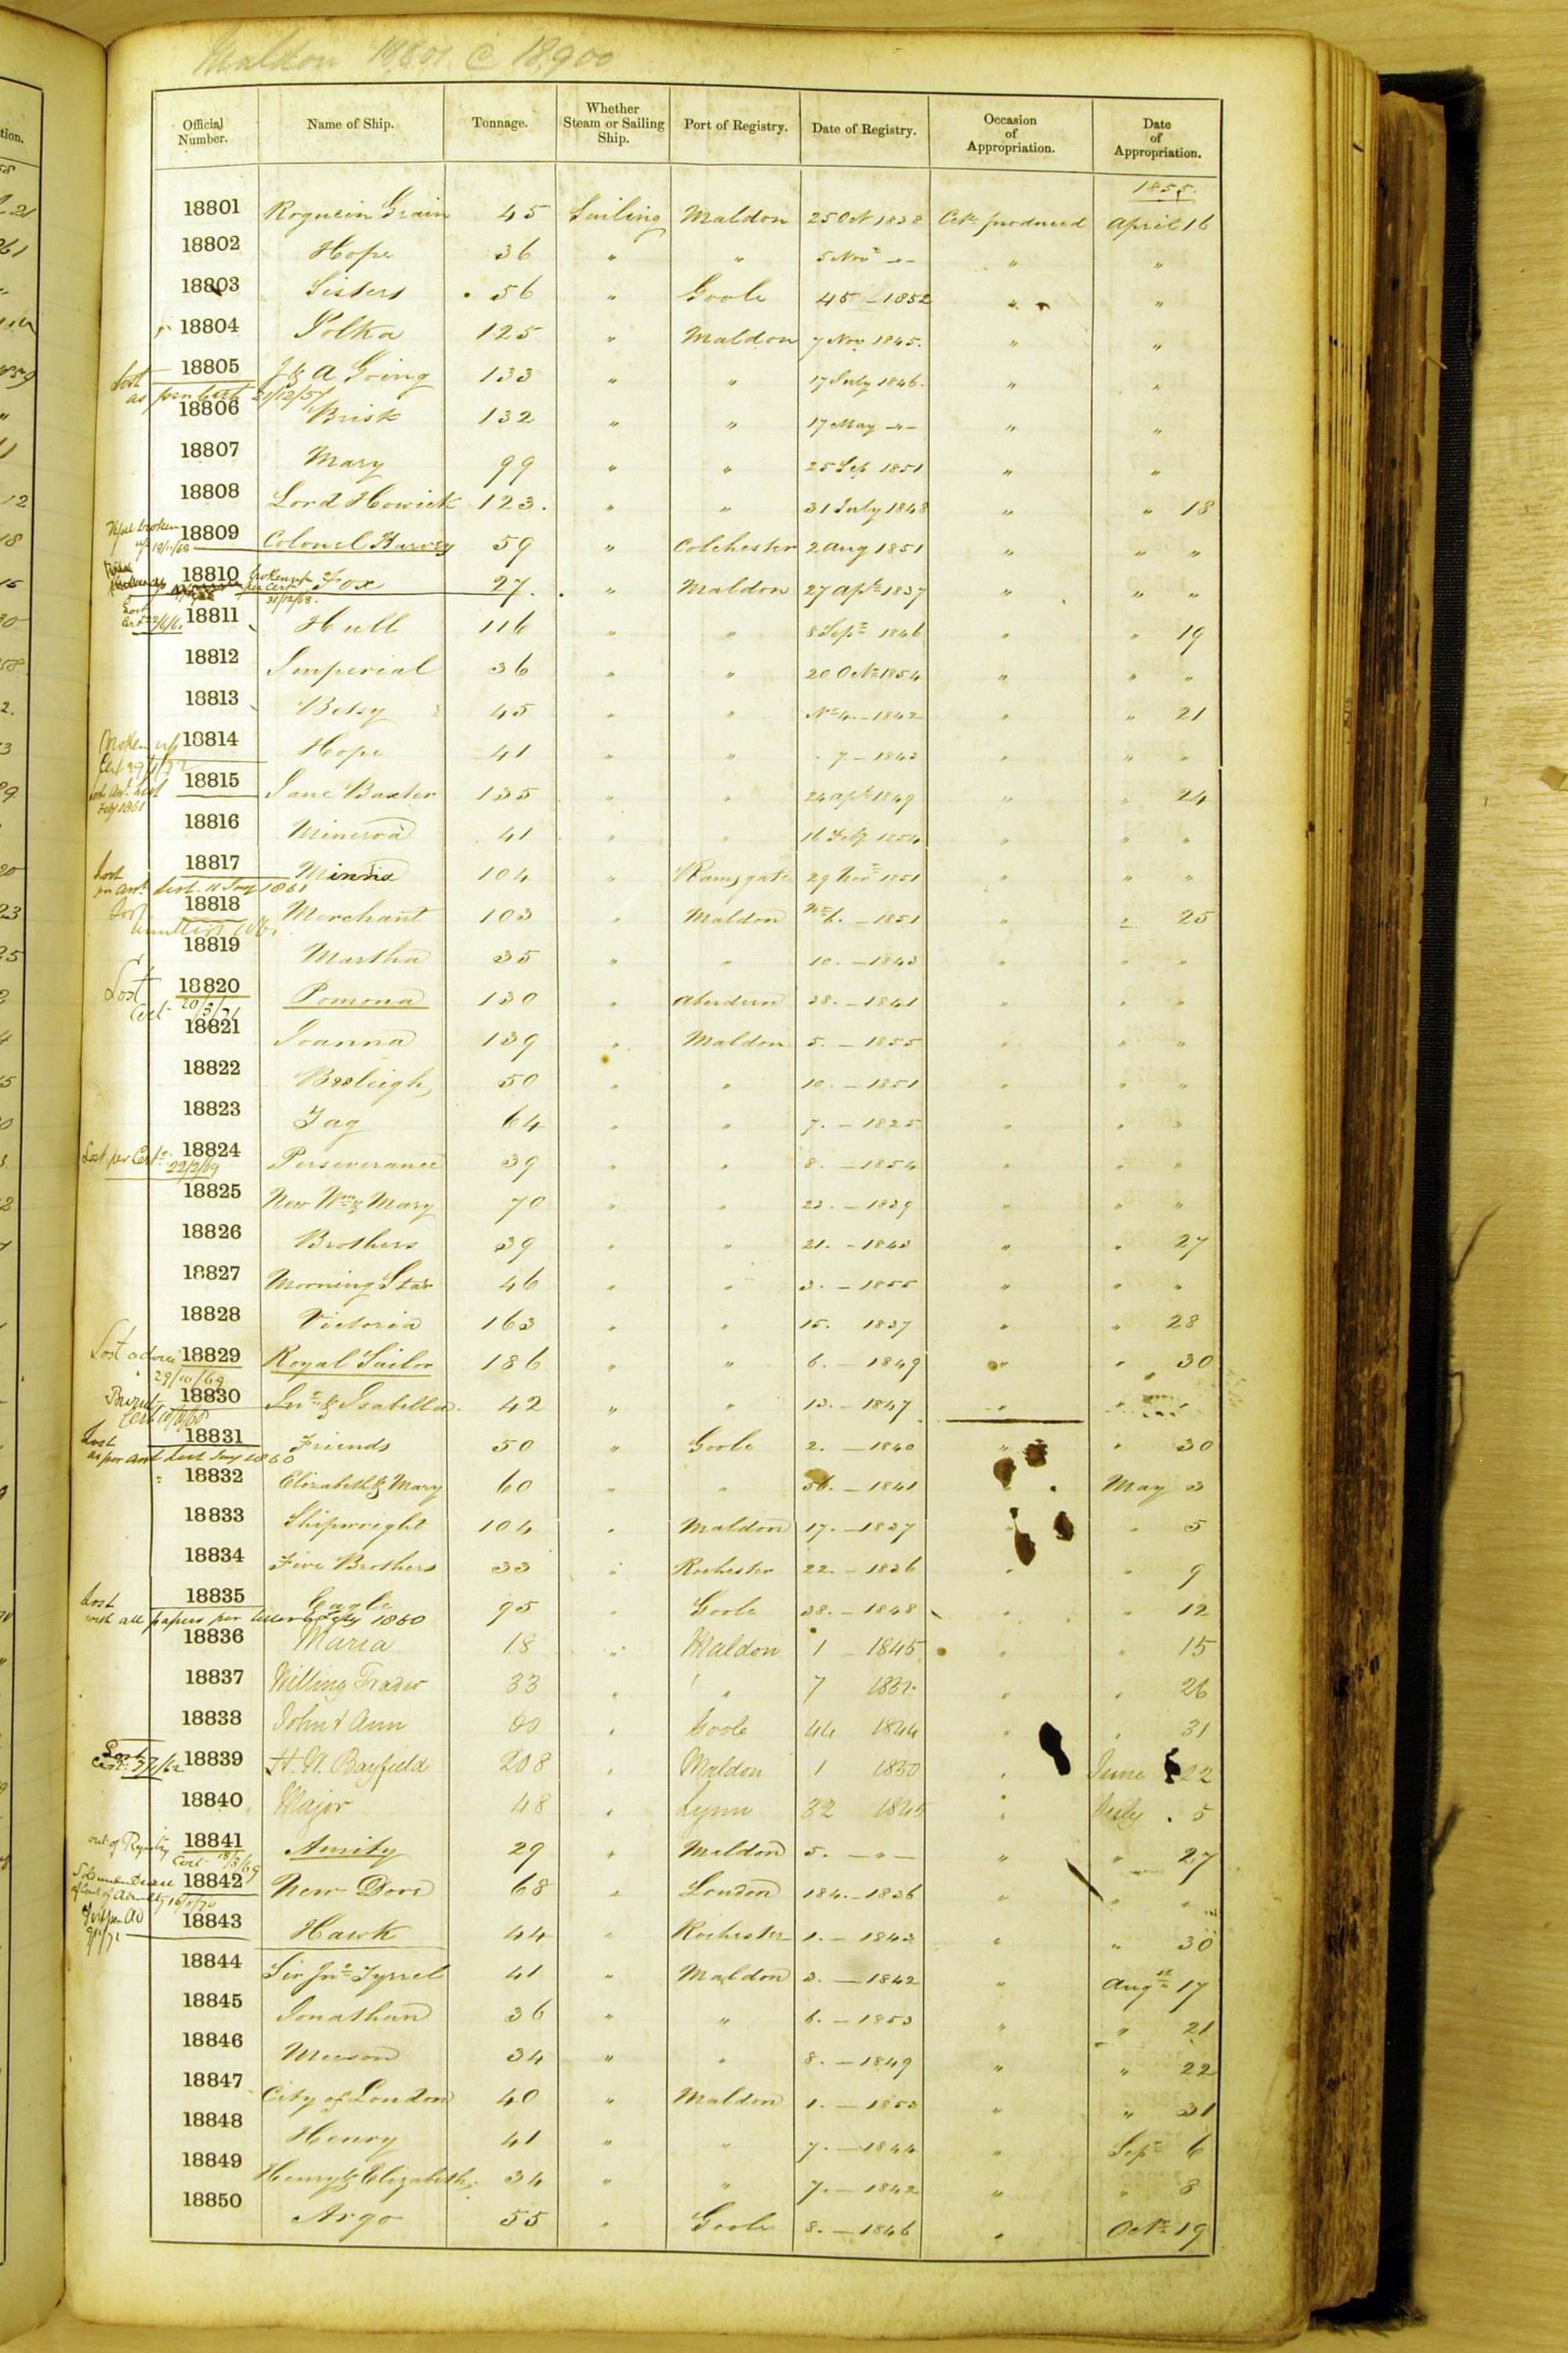 Maldon 18801 @ 18900
Official Number. Name of Ship. Tonnage. Whether Steam or Sailing Ship. Port of Registry. Date of Registry. Occasion of Appropriation. Date of Appropriation.
1855.
18801 Roguein Grain 45 Sailing Maldon 25 Oct 1838 Certe produced April 16
18802 Hope 36 " " 5 Novr -"- " "
18803 Sisters 56 " Goole 45 - 1852 " "
18804 Polka 125 " Maldon 7 Nov 1845. " "
18805 J & A Going 133 " " 17 July 1846. " "
Lost as per Cert 21/12/57
18806 Brisk 132 " " 17 May -"- " "
18807 Mary 99 " " 25 Sep 1851 " "
18808 Lord Howick 123. " " 31 July 1848 " " 18
18809 Colonel Harvey 59 " Colchester 2 Aug 1851 " " "
18810 Fox 27. " Maldon 27 Apl 1837 " " "
broken up per Cert 31/12/68.
18811 Hull 116 " " 8 Sepr 1846 " " 19
18812 Imperial 36 " " 20 Octr 1854 " " "
18813 Betsy 45 " " No 4. - 1842 " " 21
18814 Hope 41 " " 7 - 1843 " " "
Broken up
18815 Jane Baxter 135 " " 24 Apl 1849 " " 24
Feby 1861
18816 Minerva 41 " " 16 Feby 1854 " " "
18817 Minna 104 " Ramsgate 29 Novr 1851 " " "
Lost per Annl List. 11 Jany 1861
18818 Merchant 103 " Maldon No 6. - 1851 " " 25
18819 Martha 35 " " 10. - 1843 " " "
Lost 18820 Pomona 130 " Aberdeen 38. - 1841 " " "
Cert 20/3/71
18821 Joanna 139 " Maldon 5. - 1855 " " "
18822 Beeleigh 50 " " 10. - 1851 " " "
18823 Jag 64 " " 7. - 1825 " " "
Lost per Certe 18824 Perseverance 39 " " 8. - 1854 " " "
22/2/69
18825 New Wm & Mary 70 " " 23. - 1839 " " "
18826 Brothers 39 " " 21. - 1843 " " 27
18827 Morning Star 46 " " 3. - 1855 " " "
18828 Victoria 163 " " 15. 1837 " " 28
Lost advice 18829 Royal Sailor 186 " " 6. - 1849 " " 30
29/10/69
18830 Jno & Isabella. 42 " " 13. - 1847 " " "
18831 Friends 50 " Goole 2. - 1840 " " 30
Lost as per Annl List Jany 1860
18832 Elizabeth & Mary 60 " " 56. - 1841 " May 3
18833 Shipwright 104 " Maldon 17. - 1837 " " 5
18834 Five Brothers 33 " Rochester 22. - 1836 " " 9
18835 Eagle 95 " Goole 38. - 1848 " " 12
Lost with all papers per letter 6 July 1860
18836 Maria 18 " Maldon 1 - 1845 " " 15
18837 Willing Trader 33 " " 7 " " 26
18838 John & Ann 60 " Goole 44 1844 " " 31
18839 H. W. Bayfield 208 " Maldon 1 1850 " June 22
18840 Major 48 " Lynn 32 1845 " July 5
out of Registry 18841 Amity 29 " Maldon 5. - " - " " 27
Cert 18/3/69
18842 New Dove 68 " London 184. - 1836 " " "
18843 Hawk 44 " Rochester 1. - 1843 " " 30
18844 Sir Jno Tyrrel 41 " Maldon 3. - 1842 " Augst 17
18845 Jonathan 36 " " 6. - 1853 " " 21
18846 Meeson 34 " " 8. - 1849 " " 22
18847 City of London 40 " Maldon 1. - 1853 " " 31
18848 Henry 41 " " 7. - 1844 " Sepr 6
18849 Henry & Elizabeth. 34 " " 7. - 1842 " " 8
18850 Argo 55 " Goole 8. - 1846 " Octr 19